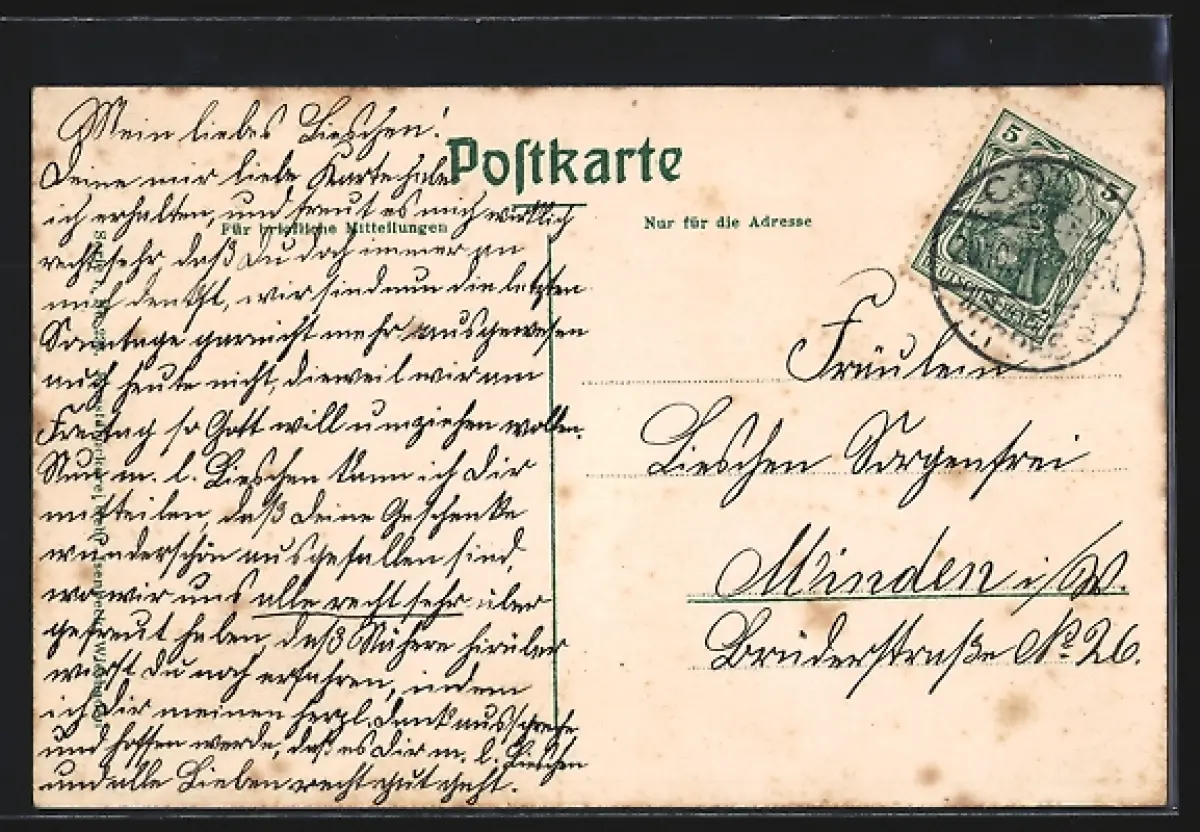 Mein liebes Lieschen!
Deine mir liebe Karte habe
ich erhalten, und freut es mich wirklich
recht sehr, daß Du doch immer an
mich denkst, wir sind nun die letzten
Sonntage garnicht mehr ausgewesen
auch heute nicht, dieweil wir am
Freitag so Gott will umziehen wollen.
Nun m. l. Lieschen kann ich Dir
mitteilen, daß Deine Geschenke
wunderschön ausgefallen sind,
wo wir uns alle recht sehr über
gefreut haben, daß Nähere hirüber
wirst Du noch erfahren, indem
ich Dir meinen herzl. Dank ausspreche
und hoffen werde, daß es Dir m. l. Lieschen
und alle Lieben recht gut geht.
Postkarte
Für briefliche Mitteilungen
Nur für die Adresse
5
5
Fräulein
Lieschen Sorgenfrei
Minden i/W.
Brüderstraße No. 26.